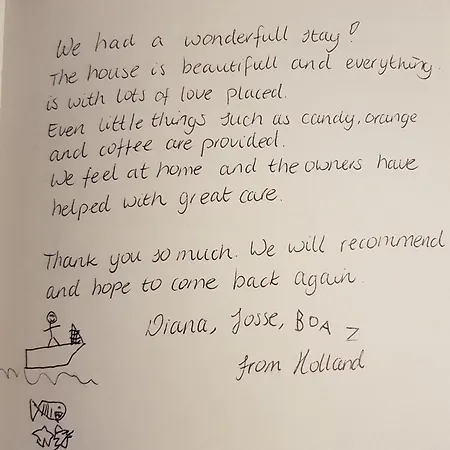 We had a wonderfull stay!
The house is beautifull and everything
is with lots of love placed.
Even little things such as candy, orange
and coffee are provided.
We feel at home and the owners have
helped with great care.
Thank you so much. We will recommend
and hope to come back again.
Diana, Josse, BOAZ
from Holland